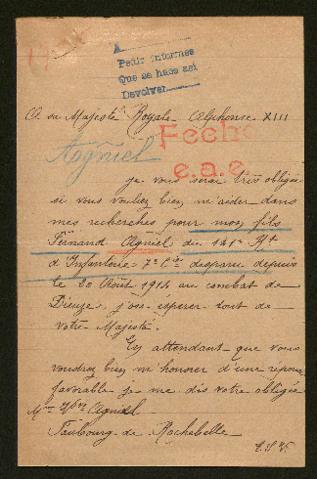 A
Pedir informes
Que se hace asi
Devolver
A sa Majesté Royale Alphonse XIII
Fecho
e.a.e
Agniel
je vous serai très obligée
si vous vouliez bien m'aider dans
mes recherches pour mon fils
Fernand Agniel du 141e Rgt
d'Infanterie 7e Cie disparu depuis
le 20 Août 1914 au combat de
Dieuze j'ose esperer tout de
votre Majesté.
En attendant que vous
voudrez bien m'honorer d'une reponse
favorable je me dis votre obligée
Mme Agniel
Faubourg de Rochebelle